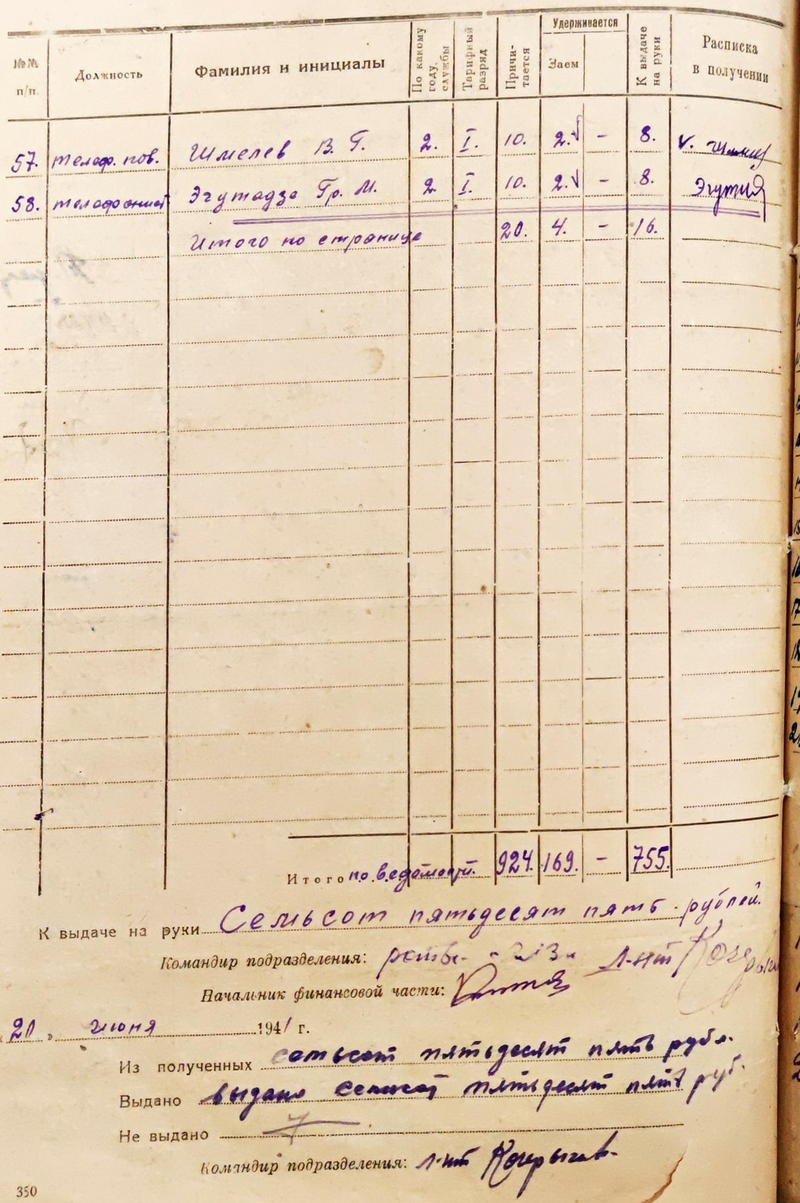 №№ п/п Должность Фамилия и инициалы По какому году службы Тарифный разряд Причитается Удерживается Заем К выдаче на руки Расписка в получении
57. телеф. пов. Шмелев В. Г. 2. I. 10. 2. – 8.
58. телефонист Эгутадзе Гр. М. 2. I. 10. 2. – 8. Эгутид
Итого по странице 20. 4. – 16.
Итого по ведомости. 924. 169. – 755.
К выдаче на руки Семьсот пятьдесят пять рублей.
Командир подразделения: л-нт
Начальник финансовой части:
20 " июня 1941 г.
Из полученных семьсот пятьдесят пять рубл.
Выдано выдано семьсот пятьдесят пять руб.
Не выдано
Командир подразделения: л-нт
350